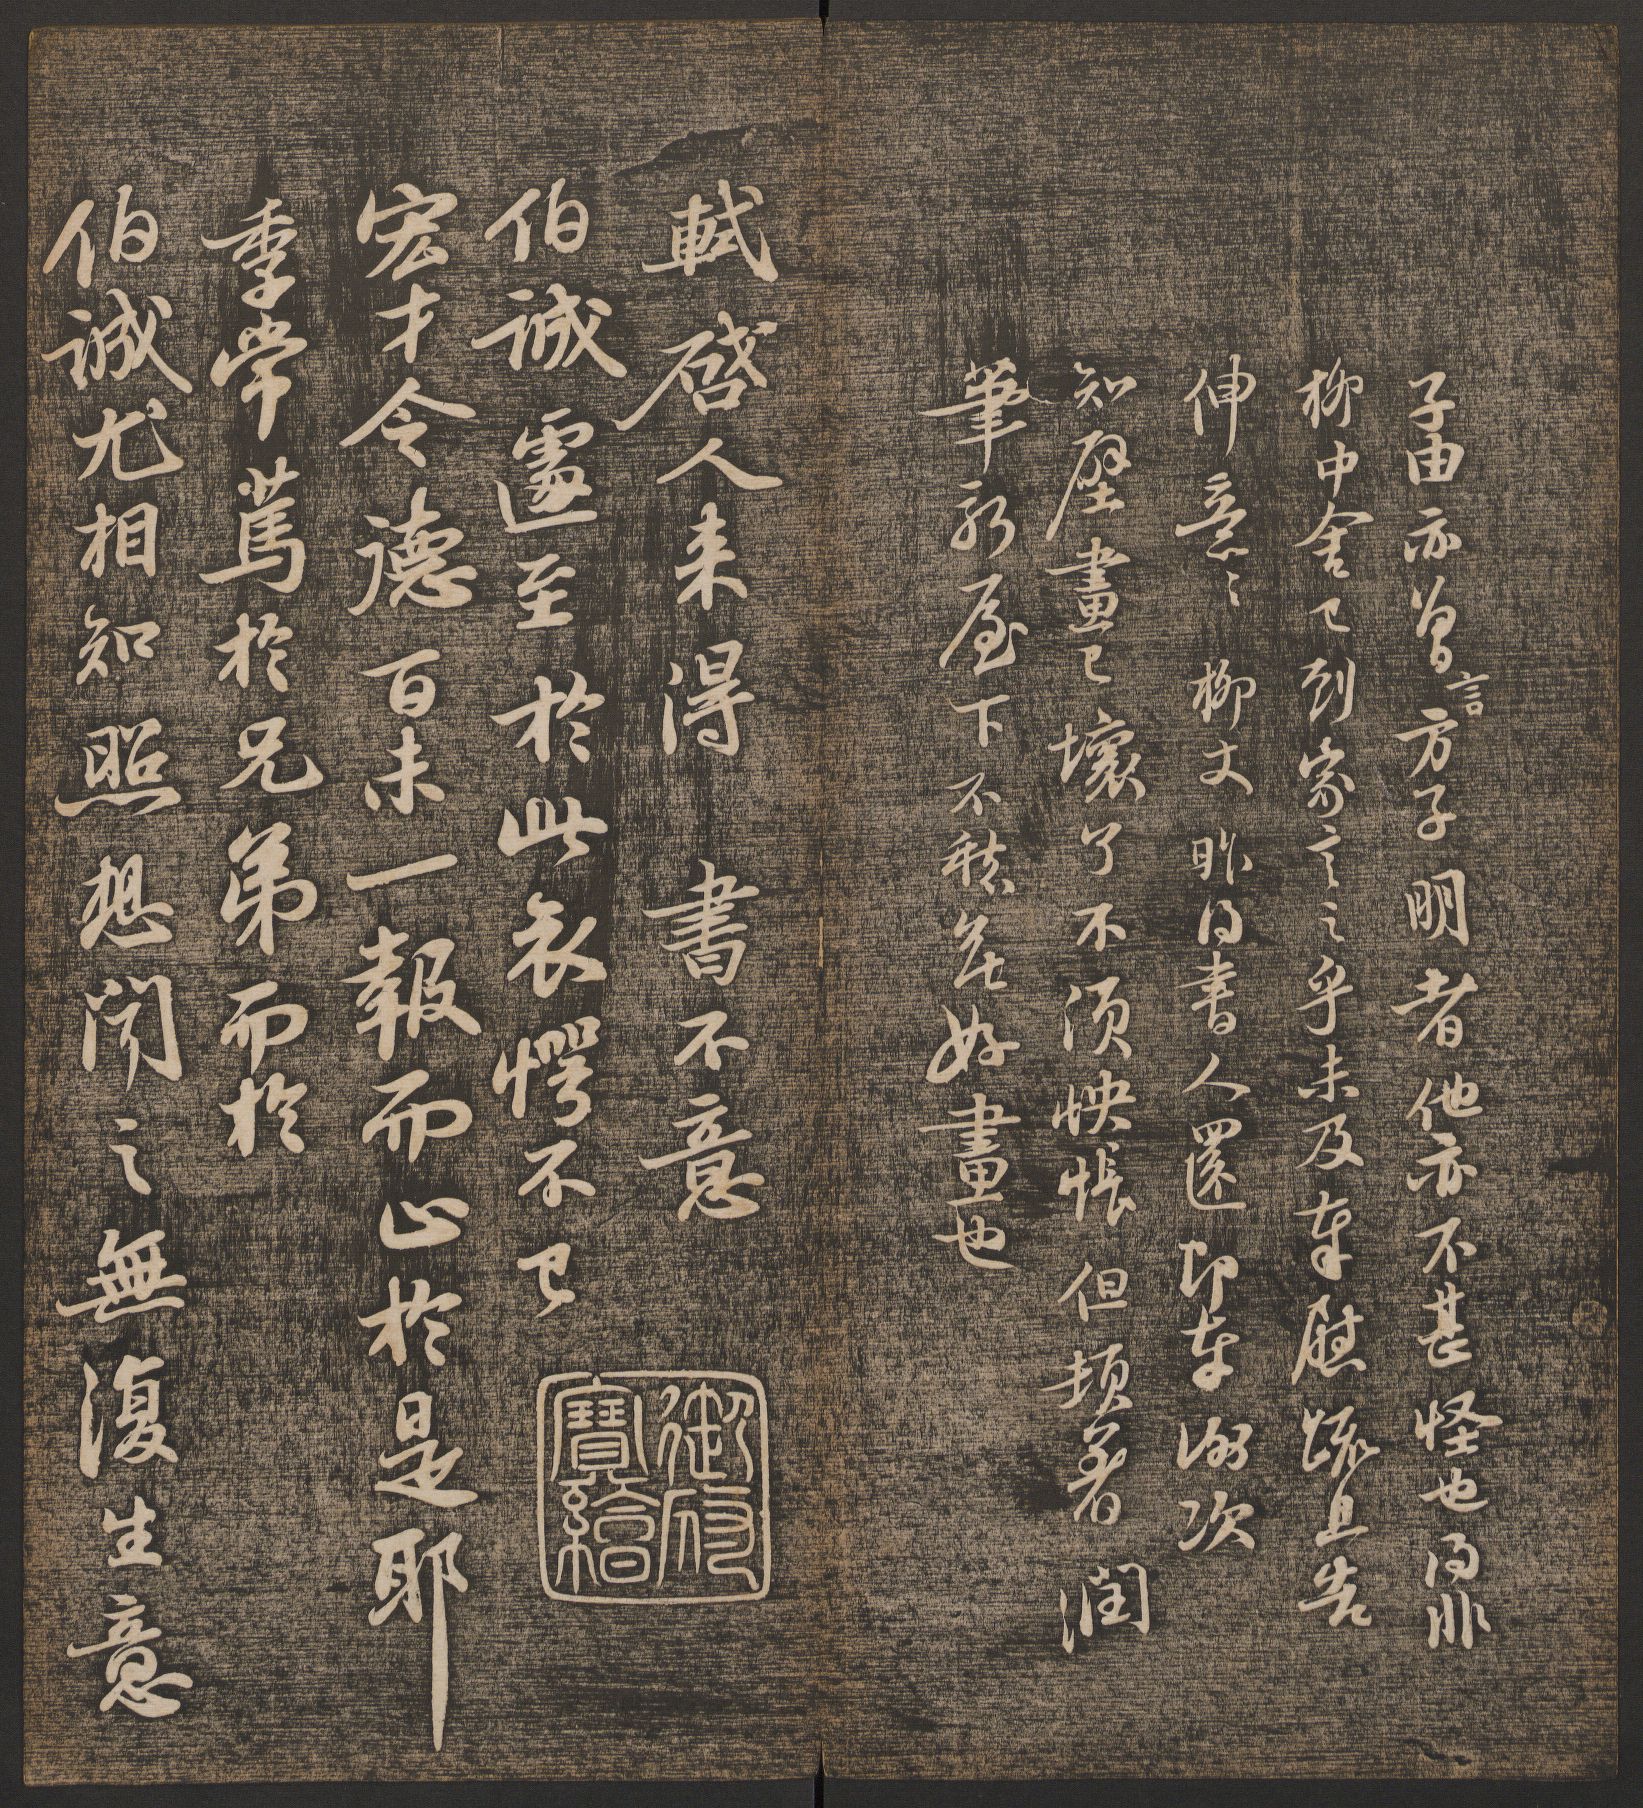 子由亦曾言方子明者他亦不甚怪也得非
柳中舍已到家言之乎未及奉慰疏且告
伸意〻柳丈昨得書人還即奉謝次
知壁畫已壞了不須怏悵但頓著潤
筆新屋下不愁無好畫也
軾啓人來得書不意
伯誠遽至於此哀愕不已
宏才令德百未一報而止於是耶
季常篤於兄弟而於
伯誠尤相知照想聞之無復生意
御府
寶繪